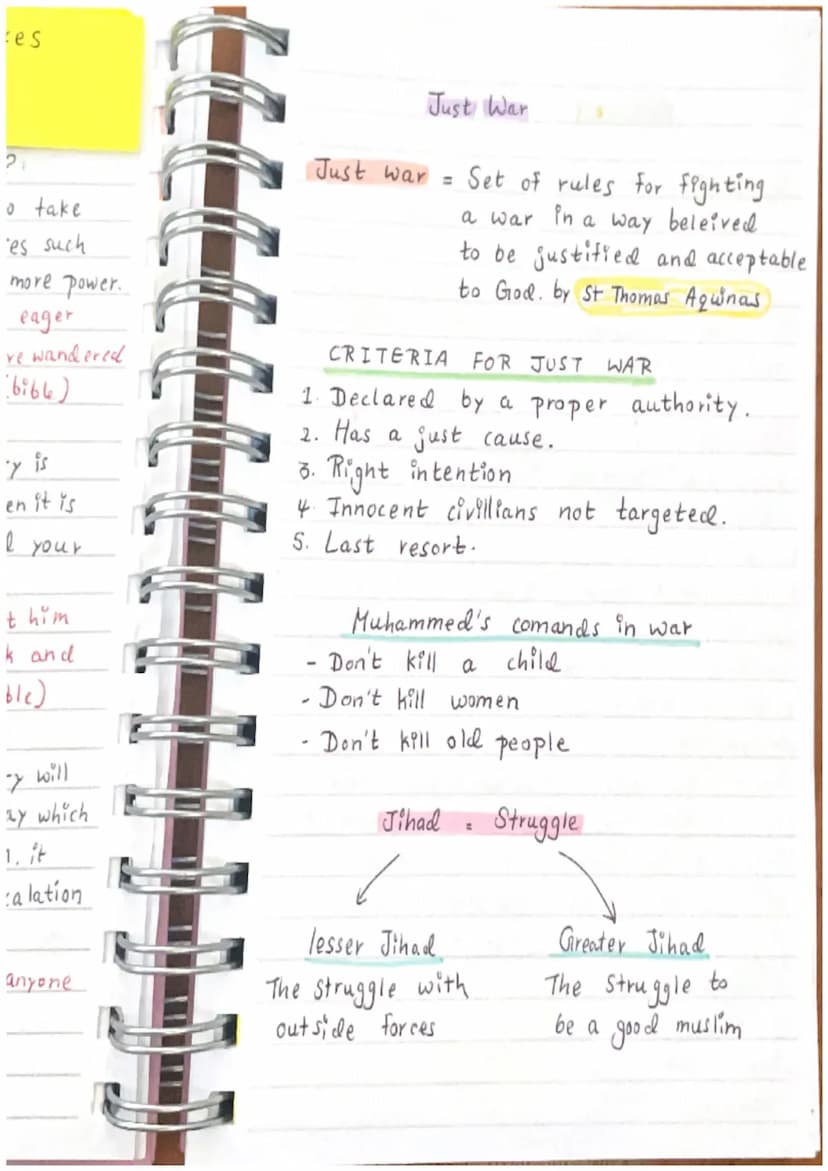 es
?
o take
es such
more power.
eager
ve wandered
bible)
y is
en it is
l your
t him
k and
ble)
y will
ay which
n. it
calation
anyone
Just War
Just war = Set of rules for fighting
a war in a way beleived
to be justified and acceptable
to God. by St Thomas Aquinas
CRITERIA FOR JUST WAR
1. Declared by a proper authority.
2. Has a just cause.
3. Right intention
4. Innocent civillians not targeted.
5. Last resort.
Muhammed's comands in war
- Don't kill a child
- Don't kill women
- Don't kill old people
Jihad = Struggle
lesser Jihad
The struggle with
outside forces
Greater Jihad
The Struggle to
be a good muslim